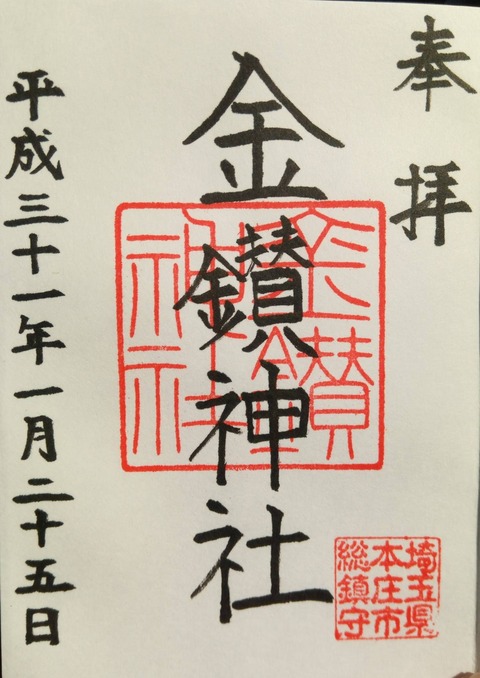 奉拝
金鑚神社
平成三十一年一月二十五日
埼玉県
本庄市
総鎮守